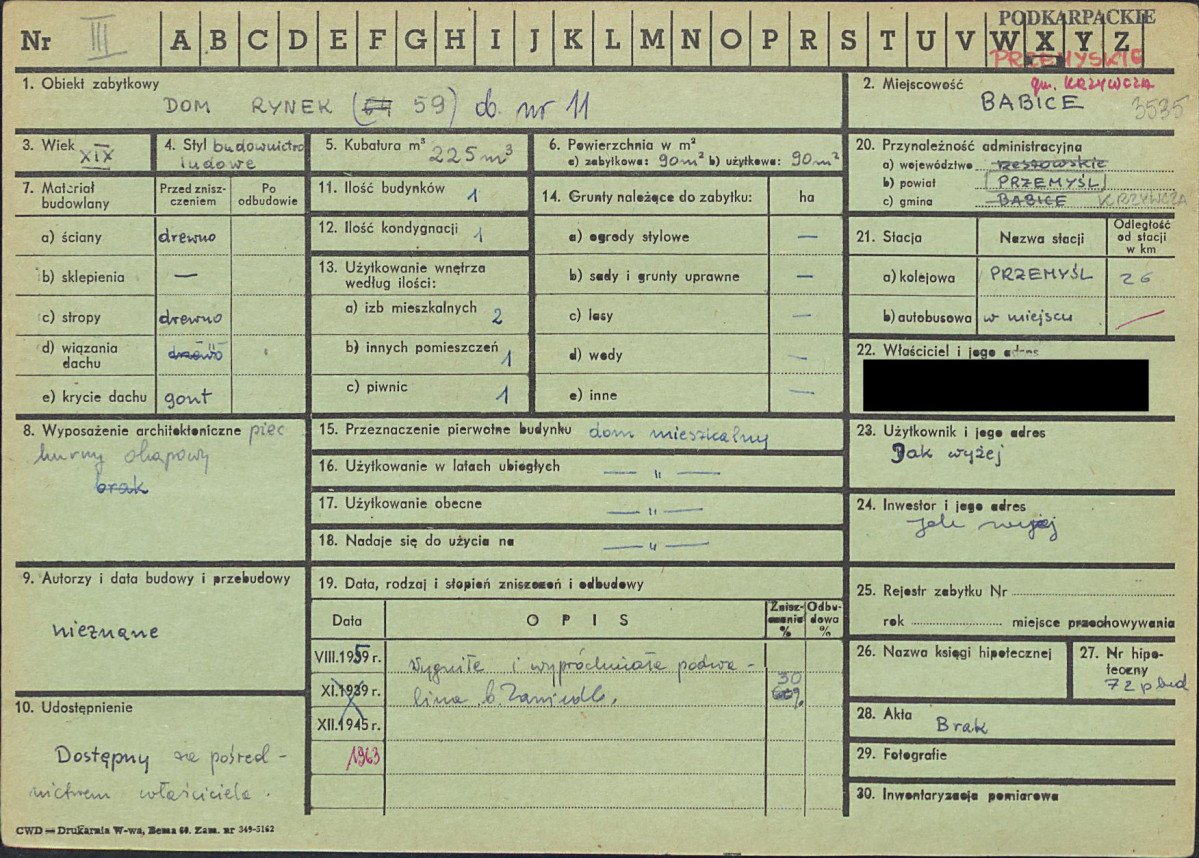 PODKARPACKIE
Nr III A B C D E F G H I J K L M N O P R S T U V W X Y Z
PRZEMYSKIE
1. Obiekt zabytkowy
DOM RYNEK (64 59) d. nr 11
2. Miejscowość gm. KRZYWCZA
BABICE 3535
3. Wiek
XIX
4. Styl budownictwo
ludowe
5. Kubatura m³
225 m³
6. Powierzchnia w m²
a) zabytkowa: 90m² b) użytkowa: 90m²
20. Przynależność administracyjna
a) województwo rzeszowskie
b) powiat PRZEMYŚL
c) gmina BABICE KRZYWCZA
7. Materiał budowlany
Przed zniszczeniem
Po odbudowie
a) ściany drewno
b) sklepienia —
c) stropy drewno
d) wiązania dachu
e) krycie dachu gont
11. Ilość budynków 1
12. Ilość kondygnacji 1
13. Użytkowanie wnętrza
według ilości:
a) izb mieszkalnych 2
b) innych pomieszczeń 1
c) piwnic 1
14. Grunty należące do zabytku: ha
a) ogrody stylowe —
b) sady i grunty uprawne —
c) lasy —
d) wody —
e) inne —
21. Stacja Nazwa stacji Odległość od stacji w km
a) kolejowa PRZEMYŚL 26
b) autobusowa w miejscu
22. Właściciel i jego adres
8. Wyposażenie architektoniczne piec
kurny okapowy
brak
15. Przeznaczenie pierwotne budynku dom mieszkalny
16. Użytkowanie w latach ubiegłych — " —
17. Użytkowanie obecne — " —
18. Nadaje się do użycia na — " —
23. Użytkownik i jego adres
Jak wyżej
24. Inwestor i jego adres
Jak wyżej
9. Autorzy i data budowy i przebudowy
nieznane
19. Data, rodzaj i stopień zniszczeń i odbudowy
Data OPIS Zniszczenia % Odbudowa %
VIII.1959 r. Wygniłe i wypróchniałe podwa-
XI.1939 r. lina 30
XII.1945 r.
1963
25. Rejestr zabytku Nr
rok miejsce przechowywania
26. Nazwa księgi hipotecznej
27. Nr hipoteczny
72 p bud
28. Akta
Brak
29. Fotografie
30. Inwentaryzacja pomiarowa
10. Udostępnienie
Dostępny za pośred-
nictwem właściciela.
CWD — Drukarnia W-wa, Bema 60. Zam. nr 349-5162